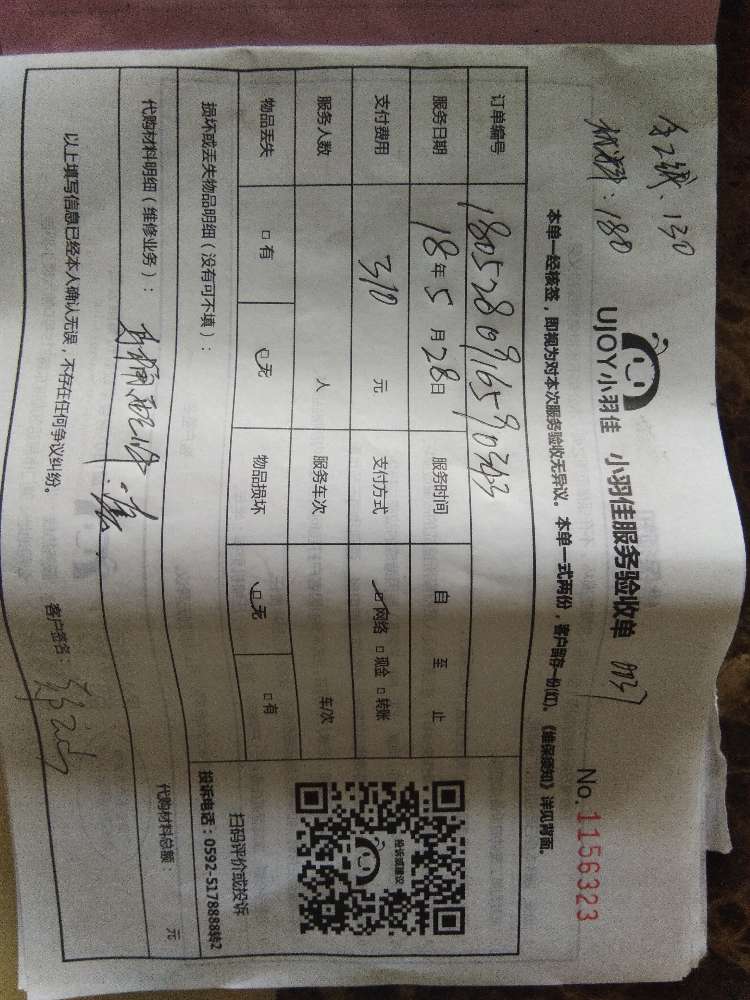 材料：180
UJOY小羽佳 小羽佳服务验收单
No. 1156323
本单一经核签，即视为对本次服务验收无异议。本单一式两份，客户留存一份(红)。《维保须知》详见背面。
订单编号
服务日期 18年5月28日 服务时间 自 至 止
支付费用 310 元 支付方式 网络 现金 转账
服务人数 人 服务车次 车/次
物品丢失 有 无 物品损坏 无 有
投诉或建议
扫码评价或投诉
投诉电话：0592-5178888转2
损坏或丢失物品明细（没有可不填）：
代购材料明细（维修业务）： 代购材料总额 元
以上填写信息已经本人确认无误，不存在任何争议纠纷。 客户签名：